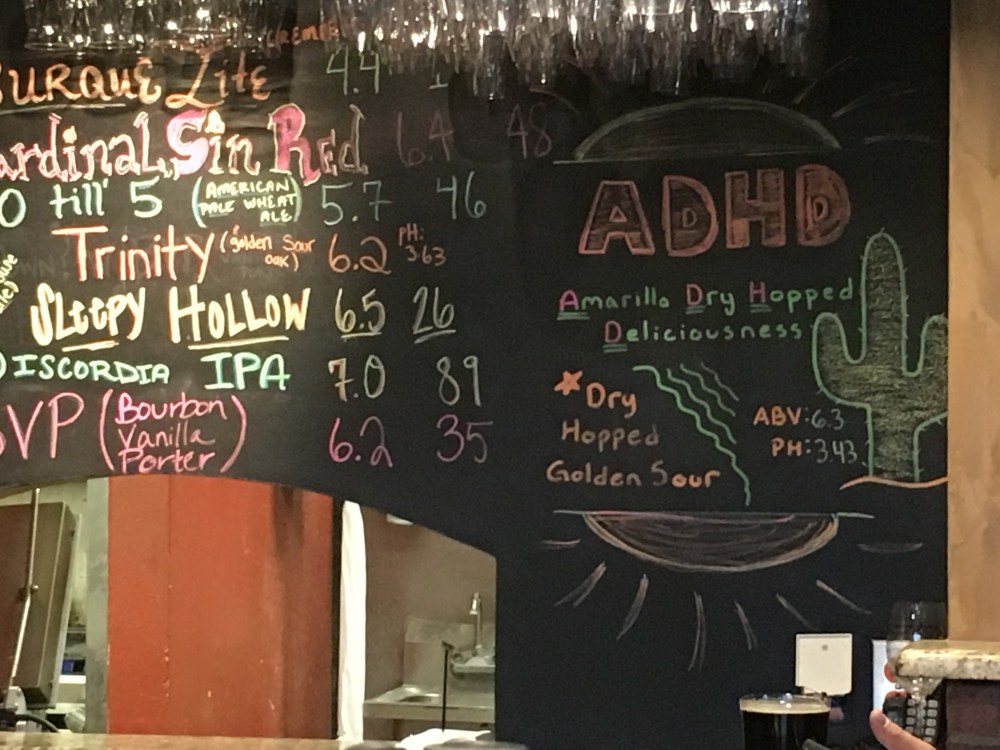 BURQUE Lite 4.4
Cardinal Sin Red 6.4 48
0 till' 5 (AMERICAN PALE WHEAT ALE) 5.7 46
Trinity (golden Sour oak) 6.2 PH: 3.63
SLEEPY HOLLOW 6.5 26
DISCORDIA IPA 7.0 89
BVP (Bourbon Vanilla Porter) 6.2 35
ADHD
Amarillo Dry Hopped
Deliciousness
*Dry
Hopped
Golden Sour
ABV: 6.3
PH: 3.43